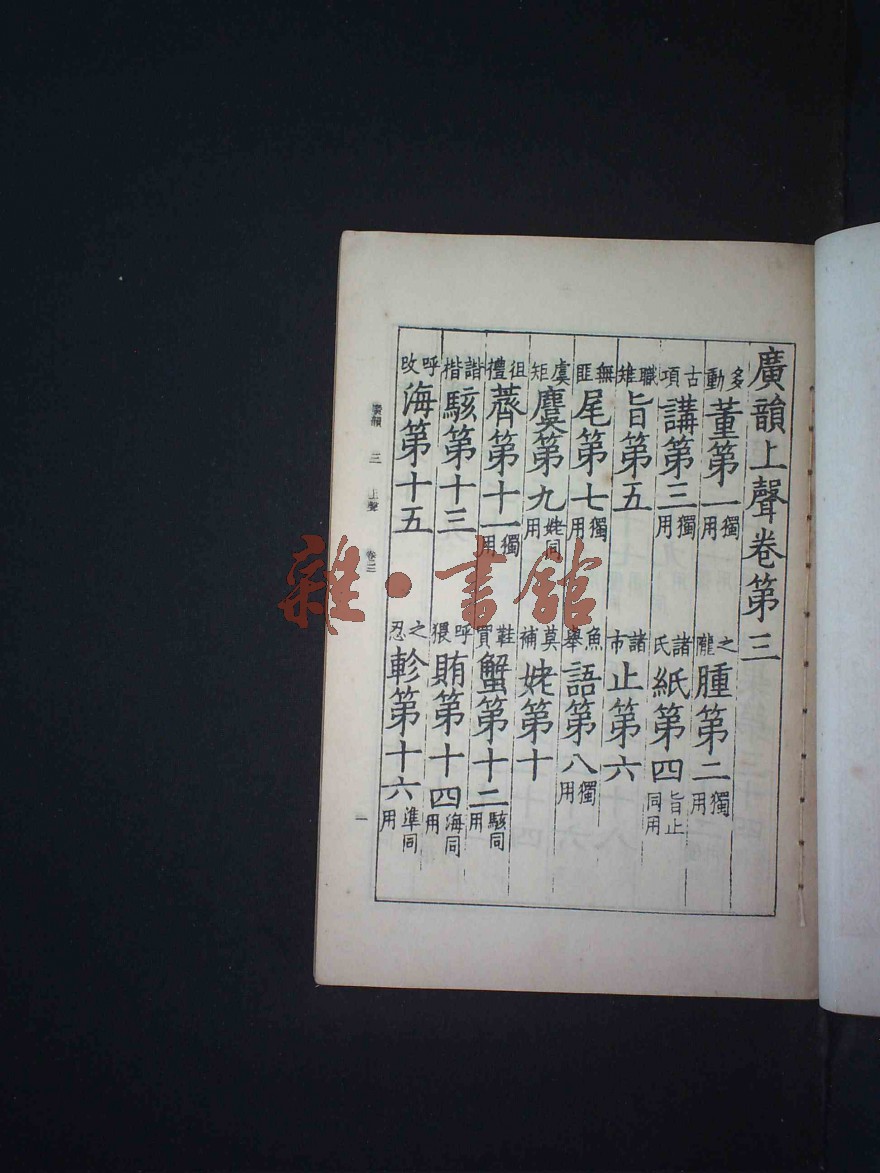 廣韻上聲卷第三
多動董第一獨用 之隴腫第二獨用
古項講第三獨用 諸氏紙第四旨止同用
職雉旨第五 諸市止第六
無匪尾第七獨用 魚舉語第八獨用
虞矩麌第九姥同用 莫補姥第十
徂禮薺第十一獨用 鞋買蟹第十二駭同用
諧楷駭第十三 呼猥賄第十四海同用
呼改海第十五 之忍軫第十六準同用
廣韻 三 上聲 卷三 一
雜·書館